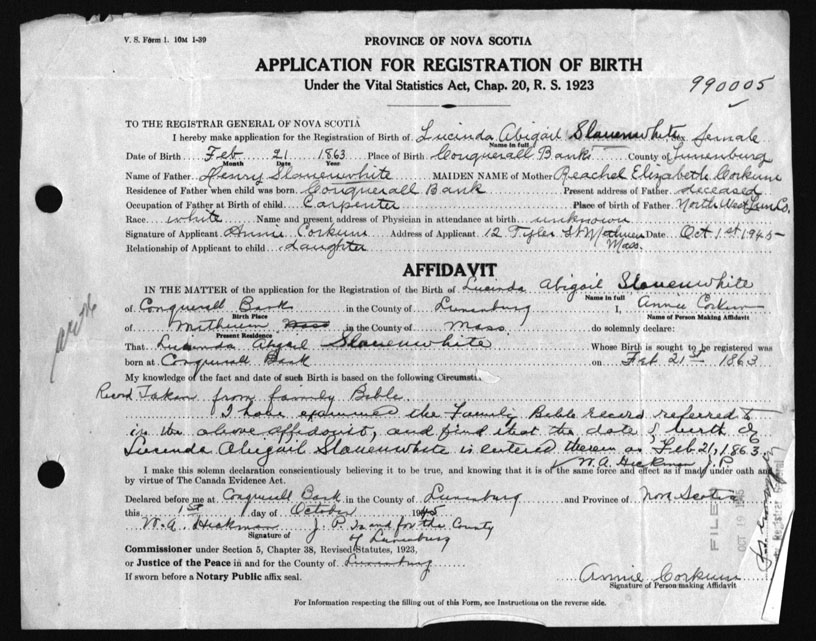 V. S. Form 1. 10M 1-39
PROVINCE OF NOVA SCOTIA
APPLICATION FOR REGISTRATION OF BIRTH
Under the Vital Statistics Act, Chap. 20, R. S. 1923
990005
TO THE REGISTRAR GENERAL OF NOVA SCOTIA
I hereby make application for the Registration of Birth of Lucinda Abigail Slauenwhite Sex female
Name in full
Date of Birth Feb 21 1863 Place of Birth Conquerall Bank County of Lunenburg
Month Date Year
Name of Father Henry Slauenwhite MAIDEN NAME of Mother Reachel Elizabeth Corkum
Residence of Father when child was born Conquerall Bank Present address of Father deceased
Occupation of Father at Birth of child Carpenter Place of birth of Father North West Lun Co.
Race white Name and present address of Physician in attendance at birth unknown
Signature of Applicant Annie Corkum Address of Applicant 12 Tyler St Methuen Mass. Date Oct 1st 1945
Relationship of Applicant to child daughter
AFFIDAVIT
IN THE MATTER of the application for the Registration of the Birth of Lucinda Abigail Slauenwhite
Name in full
of Conquerall Bank in the County of Lunenburg I, Annie Corkum
Birth Place Name of Person Making Affidavit
of Methuen Mass in the County of Mass do solemnly declare:
Present Residence
That Lucinda Abgail Slauenwhite Whose Birth is sought to be registered was
born at Conquerall Bank on Feb 21st 1863
My knowledge of the fact and date of such Birth is based on the following Circumst
Record Taken from family Bible.
I have examined the Family Bible record referred to
in the above affidavit, and find that the date of birth of
Lucinda Abigail Slauenwhite is entered therein as Feb 21, 1863
W. A. Hickman J. P.
I make this solemn declaration conscientiously believing it to be true, and knowing that it is of the same force and effect as if made under oath and
by virtue of The Canada Evidence Act.
Declared before me at Conquerall Bank in the County of Lunenburg and Province of Nova Scotia
this 1st day of October 1945
W. A. Hickman J. P. In and for the County
Signature of
of Lunenburg
Commissioner under Section 5, Chapter 38, Revised Statutes, 1923,
or Justice of the Peace in and for the County of Lunenburg
If sworn before a Notary Public affix seal.
Annie Corkum
Signature of Person making Affidavit
FILED
OCT 19 1945
Registrar General
For Information respecting the filling out of this Form, see Instructions on the reverse side.